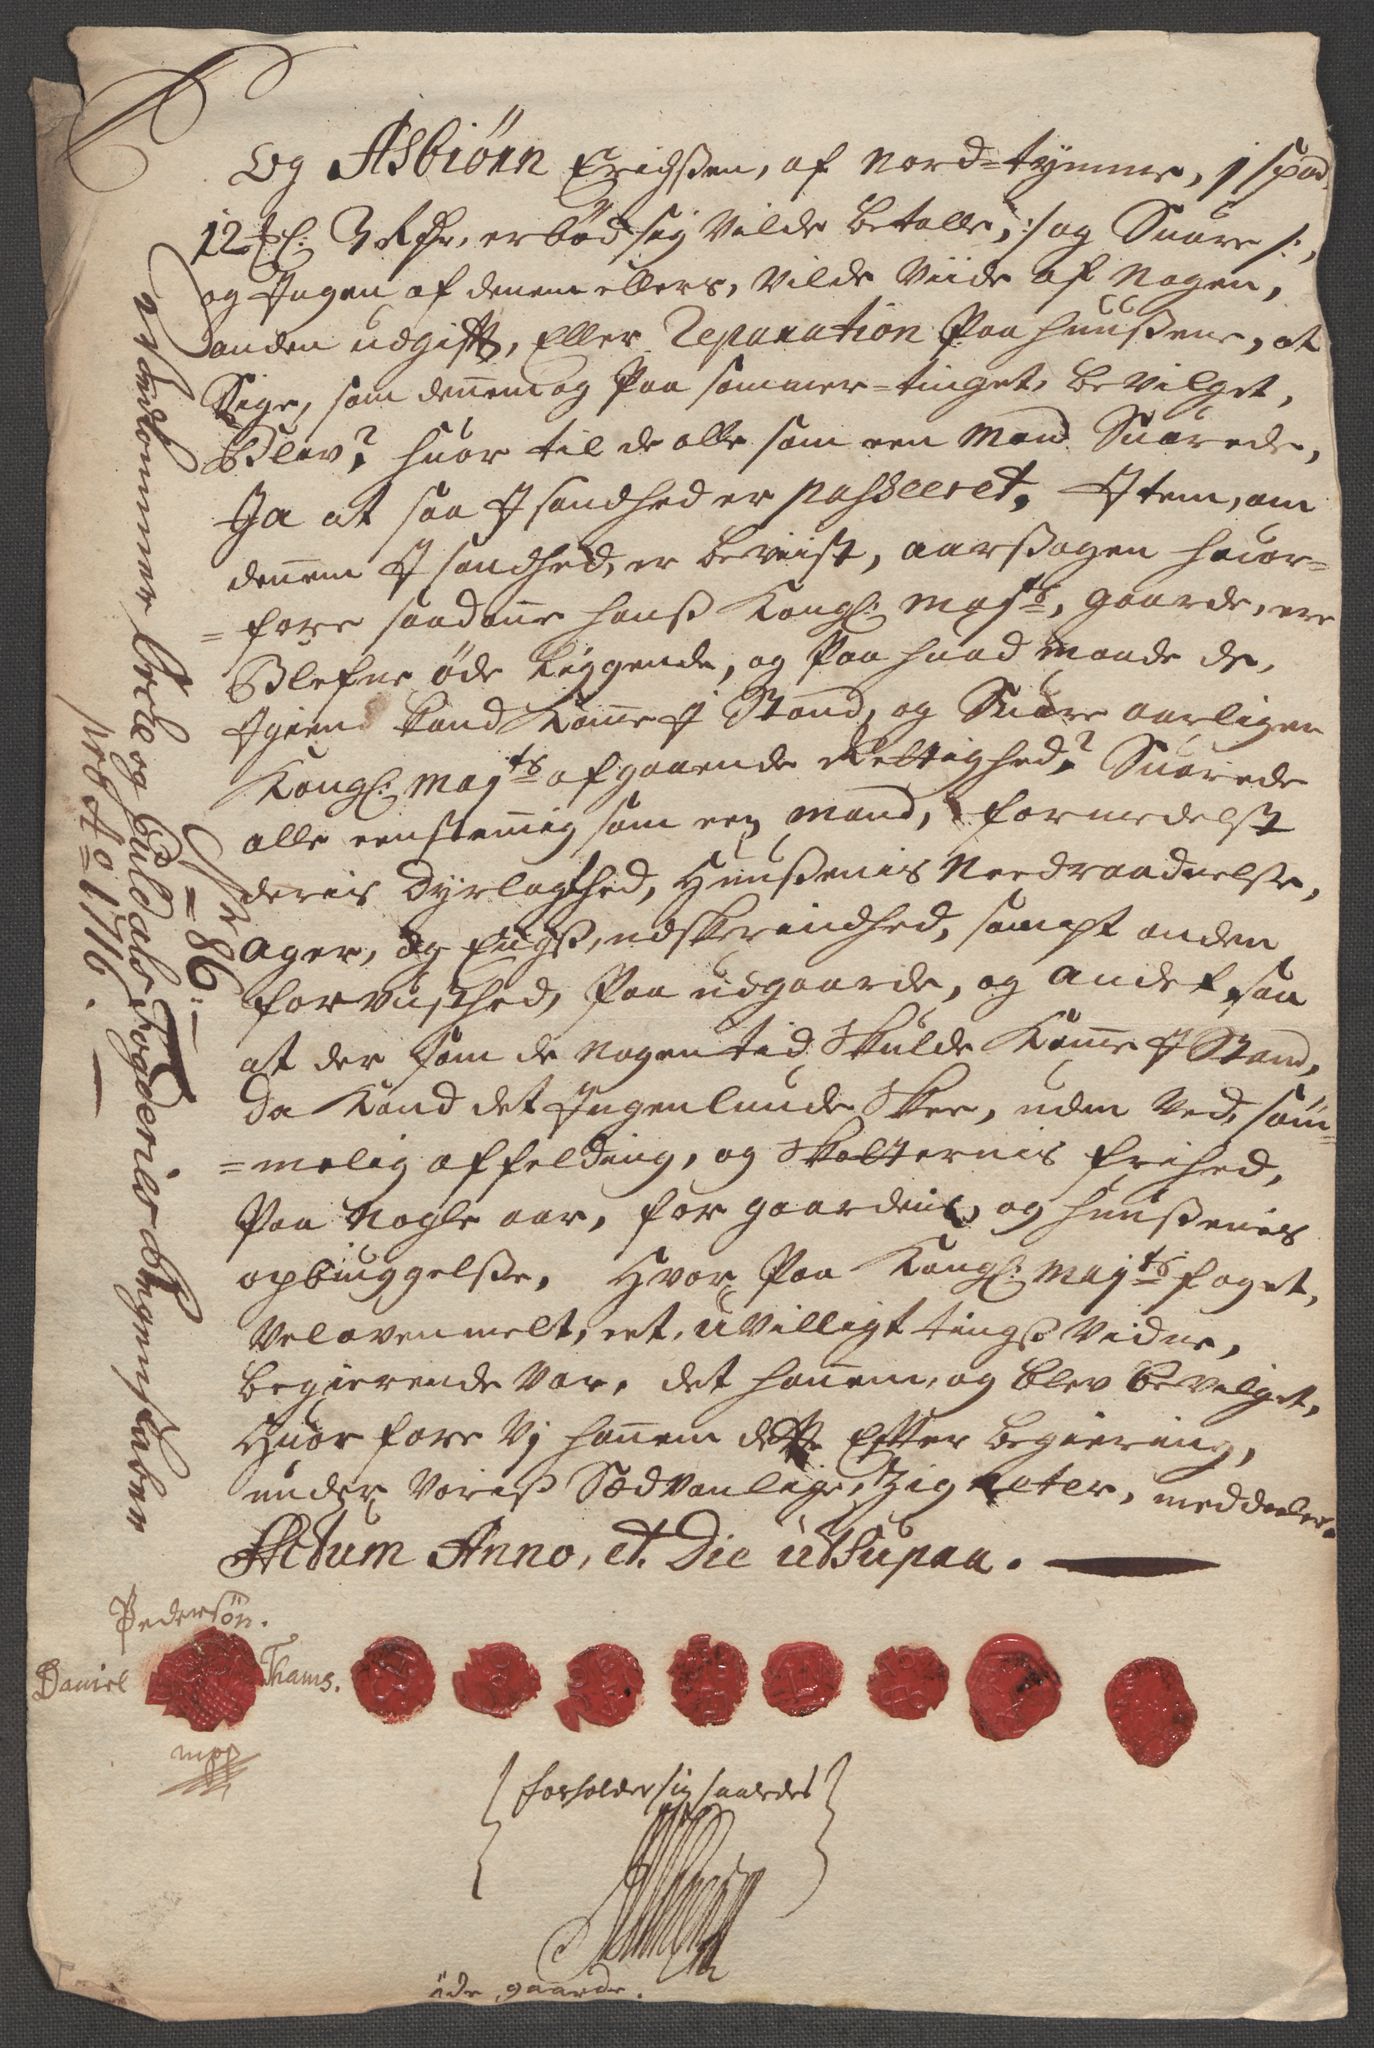 Og Asbiørn Erichßen, af Nord-tymme, 1 spand
12 Ml: 3 Rdr, erbød sig Vilde betalle, :/ og Suare /:,
og Ingen af denem ellers, Vilde Viide af Nogen,
anden udgifft, Eller Reparation Paa Huußene, at
Sige, som dennem og Paa sommer-tinget, beVilget,
Blev? Huor til de alle som een Mand Suarede,
Ja at saa J sandhed er passeeret, Jtem, om
dennem J sandhed, er beviist, aarßagen huor-
=fore saadanne hanß Kongl: Maysts, gaarde, ere
Blefne øde Liggende, og Paa huad maade de,
Jgiend kand Komme J Stand, og Suare aarligen
Kongl: Mayts afgaaende Rettighed? Suarede
alle eenstemig som een Mand, formedelst
deris Dyrlagthed, Huußenis Needraadnelse,
Ager, og Engß, udskerindhed, sampt anden
forvusthed, Paa udgaarde, og Andet saa
at der som de Nogen tid Skulde Komme J Stand,
Da Kand det Ingenlunde Skee, uden Ved, søm-
=melig affelding, og Skatternis frihed,
Paa Nogle aar, for gaardenis, og Huußenis
opbuuggelße, Hvor Paa Kongl: Mayts foget,
Velovenmelt, eet, uVilligt tingß Vidne,
begierende Var, det hannem, og blev beVilget,
Huor fore Vj hannem dette Efter begiering,
under Voriß SædVanlige Zigneter, meddeeler.
Actum Anno, et Die ut Supra.
Pedersøn.
Daniel Thams.
mpp
forholder sig saaledes
øde gaarde.
Vedkommer Orkl og Guldals Fogderies Regenskaber
pro Ao 1716.
No = 86: